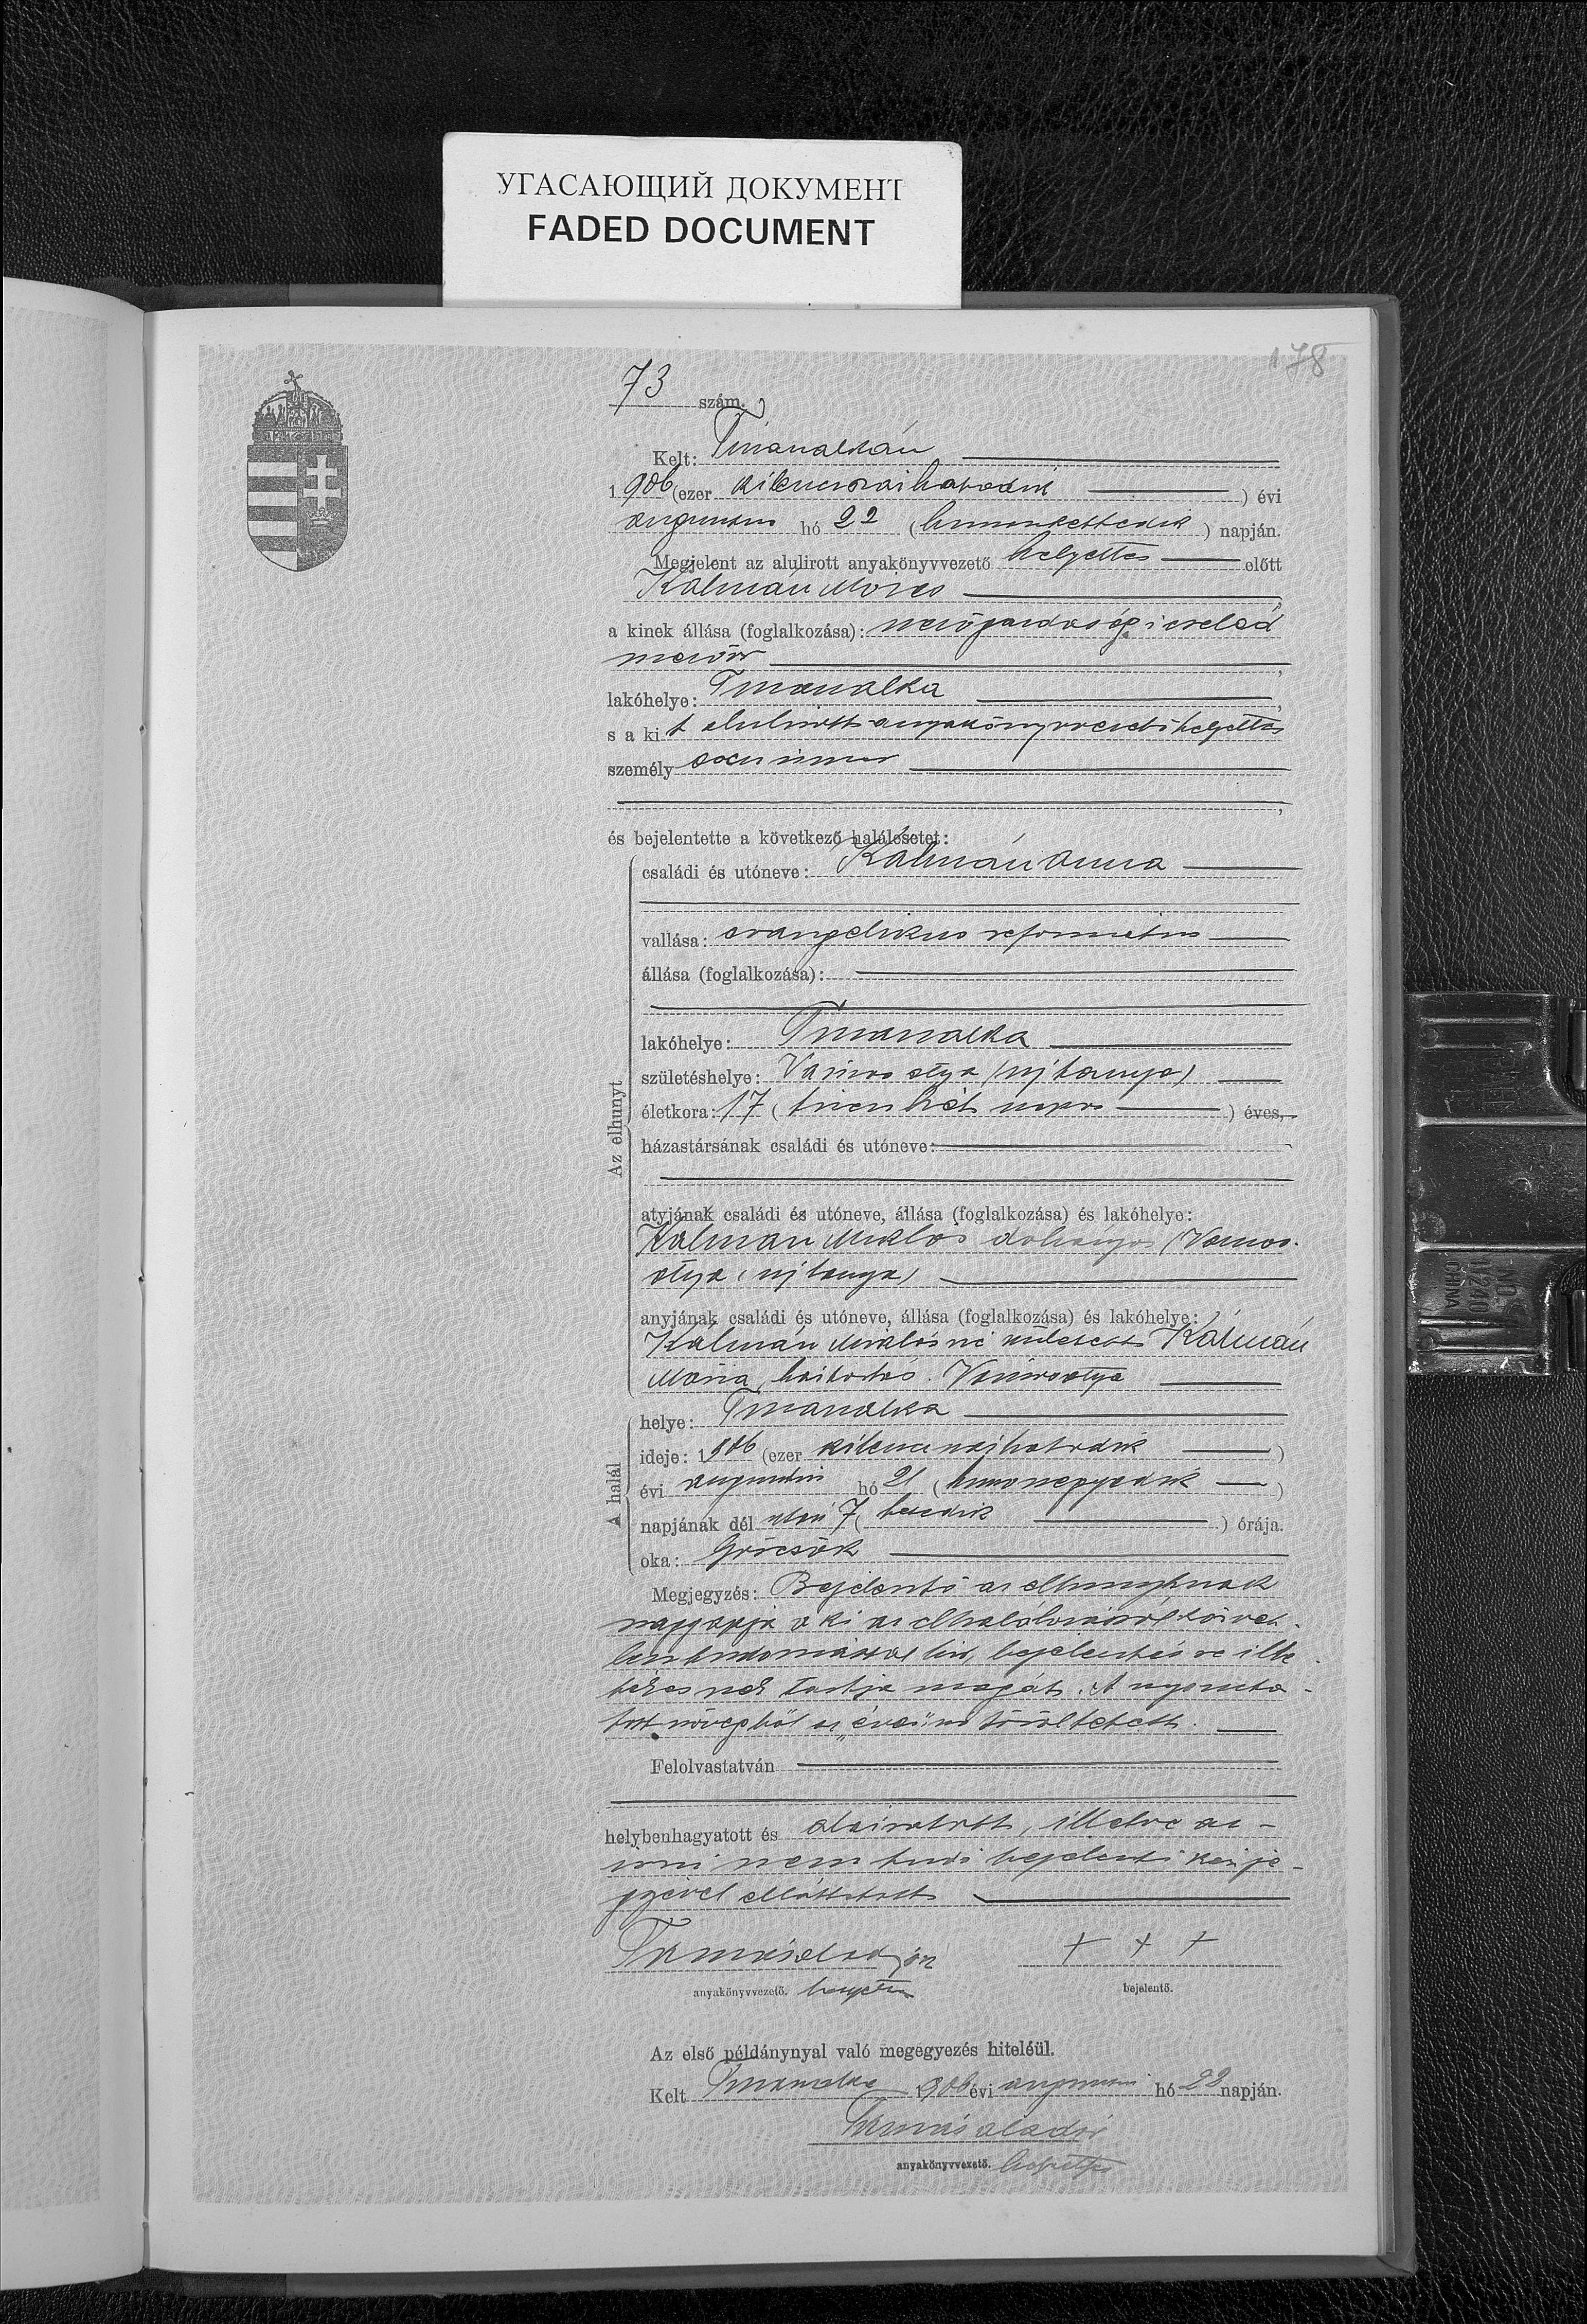 УГАСАЮЩИЙ ДОКУМЕНТ
FADED DOCUMENT
178
73 szám.
Kelt: Tiszaadonyban
1906 (ezer kilencszázhatodik) évi
augusztus hó 22 (huszonkettedik) napján.
Megjelent az alulirott anyakönyvvezető helyettes előtt
Kálmán Mózes
a kinek állása (foglalkozása): mezőgazdasági cseléd
mezőőr
lakóhelye:
s a kit alulirott anyakönyvvezető helyettes
személy
és bejelentette a következő halálesetet:
Az elhunyt
családi és utóneve: Kálmán Anna
vallása: evangelikus református
állása (foglalkozása):
lakóhelye:
születéshelye: Vámosatya (ujtanya)
életkora: 17 (tizenhét napos) éves,
házastársának családi és utóneve:
atyjának családi és utóneve, állása (foglalkozása) és lakóhelye:
Kálmán Miklós dohányos (Vámos-
atya (ujtanya)
anyjának családi és utóneve, állása (foglalkozása) és lakóhelye:
Kálmán Miklósné született Kálmán
Mária, háztartás. Vámosatya
A halál
helye:
ideje: 1906 (ezer kilencszázhatodik)
évi augusztus hó 21 (huszonegyedik)
napjának dél után 7 (hetedik) órája.
oka: Görcsök
Megjegyzés: Bejelentő az elhunytnak
nagyapja a ki az elhalálozásról közvet-
len tudomással bir, bejelentésre ille-
tékesnek tartja magát. A nyomta-
tott szövegből az „éves" szó töröltetett.
Felolvastatván
helybenhagyatott és aláiratott, illetve az
irni nem tudó bejelentő kézje-
gyével elláttatott
Tamás Aladár
+ + +
anyakönyvvezető. helyettes
bejelentő.
Az első példánynyal való megegyezés hiteléül.
Kelt 1906 évi augusztus hó 22 napján.
Tamás Aladár
anyakönyvvezető. helyettes
NO.
11240
CHINA